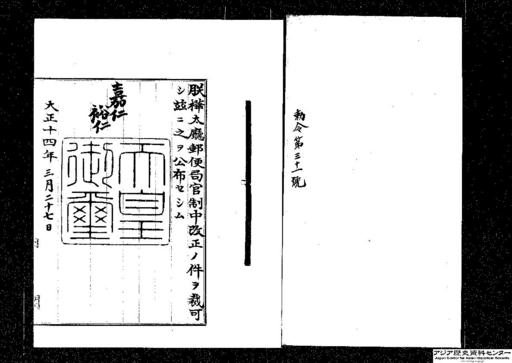 勅令第三十一號
朕樺太廳郵便局官制中改正ノ件ヲ裁可
シ茲ニ之ヲ公布セシム
嘉仁
裕仁
天皇御璽
大正十四年三月二十七日
アジア歴史資料センター
Japan Center for Asian Historical Records